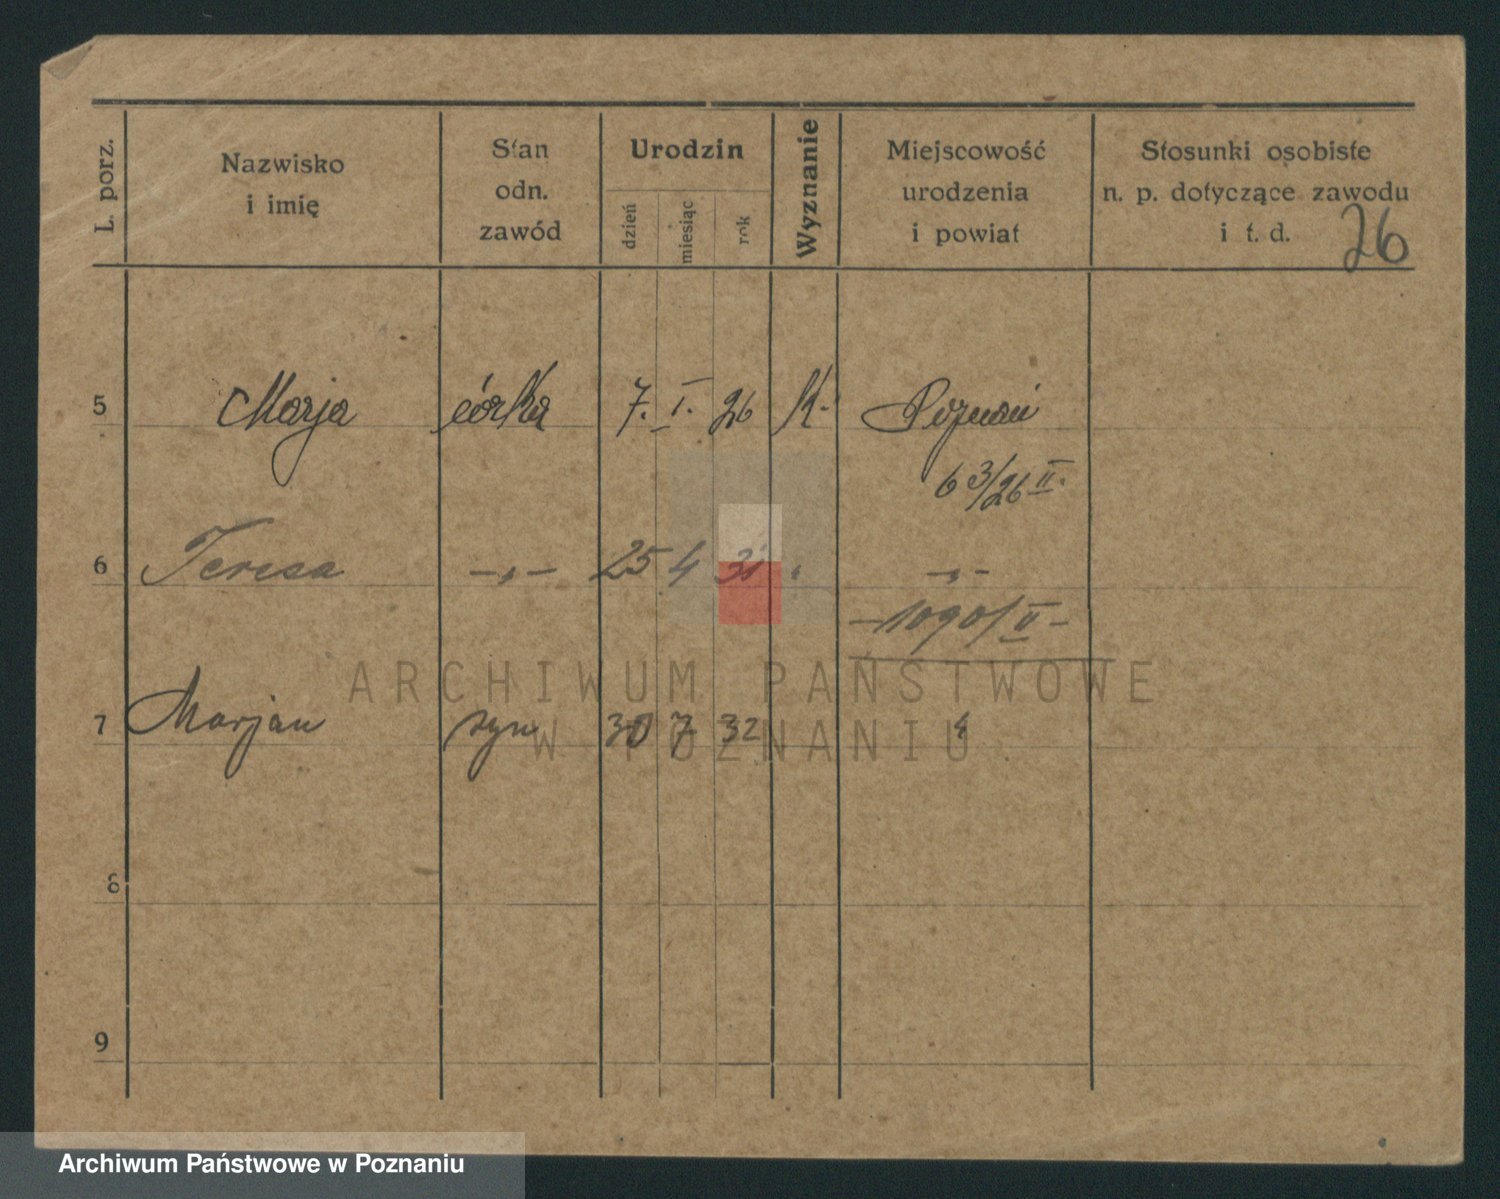 L. porz.
Nazwisko
i imię
Stan
odn.
zawód
Urodzin
dzień
miesiąc
rok
Wyznanie
Miejscowość
urodzenia
i powiat
Stosunki osobiste
n. p. dotyczące zawodu
i t. d.
26
5 Marja córka 7. I. 26 K. Poznań
63/26 II.
6 Teresa -„- 25 4 31 „ -„-
-1090/II-
7 Marjan syn 30 7 32 „
8
9
ARCHIWUM PAŃSTWOWE
W POZNANIU
Archiwum Państwowe w Poznaniu